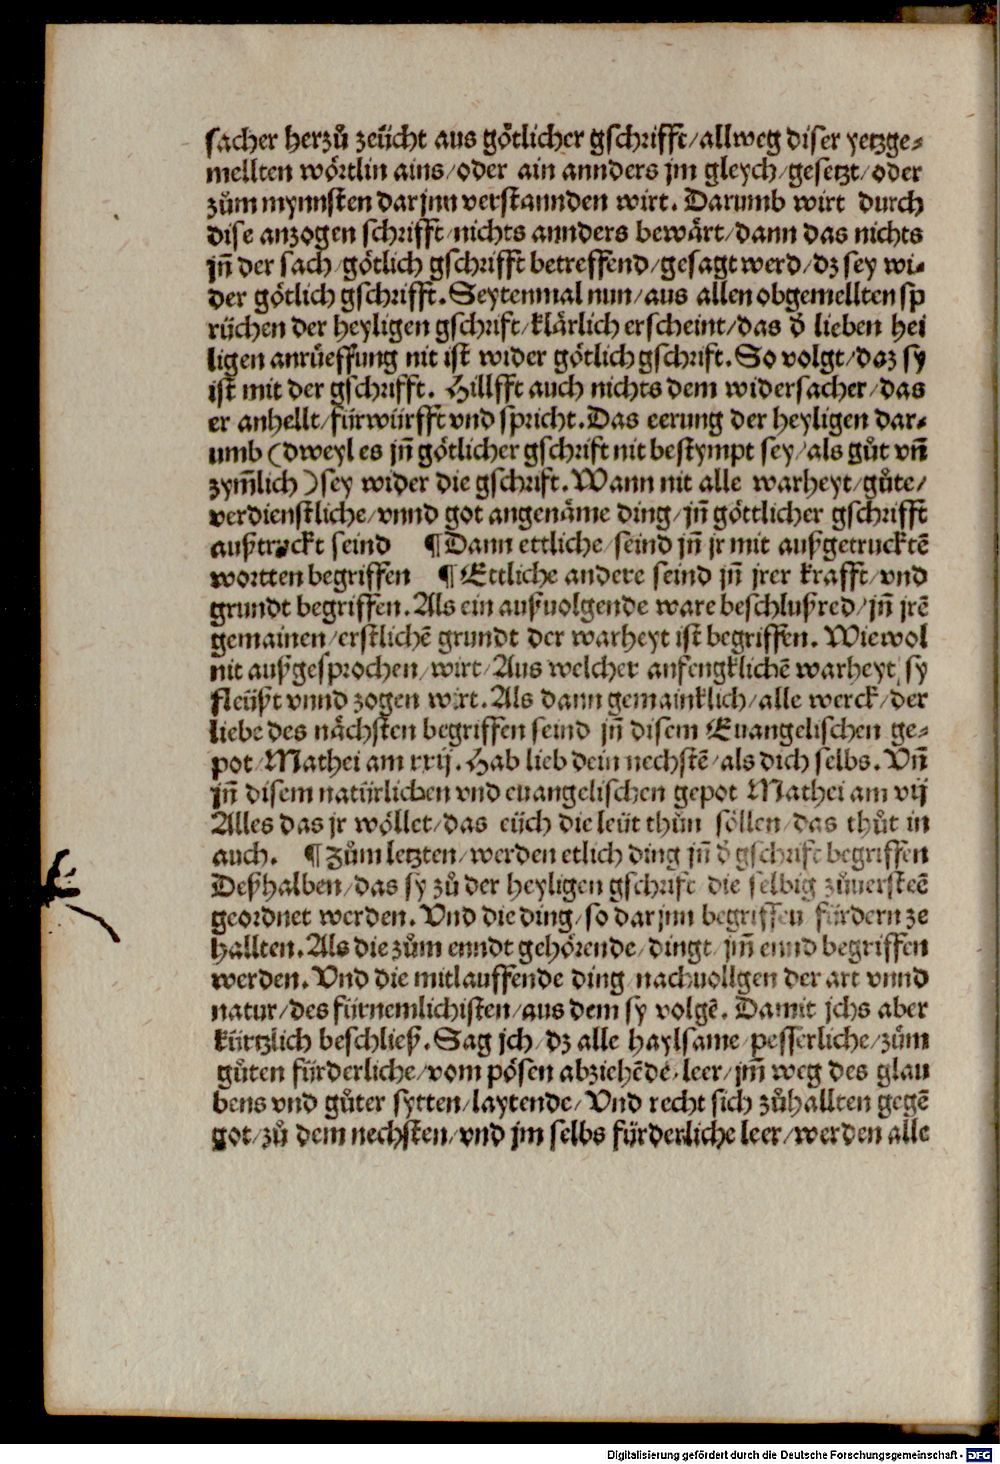 sacher herzů zeücht aus götlicher gschrifft/allweg diser yetzge⸗
mellten wörtlin ains/oder ain annders jm gleych/gesetzt/oder
zům mynnsten dar jnn verstannden wirt. Darumb wirt durch
dise anzogen schrifft/nichts annders bewärt/dann das nichts
jn̄ der sach/götlich gschrifft betreffend/gesagt werd/dz sey wi⸗
der götlich gschrifft. Seytenmal nun/aus allen obgemellten sp
rüchen der heyligen gschrift/klärlich erscheint/das d̕ lieben hei
ligen anrüeffung nit ist wider götlich gschrift. So volgt/daz sy
ist mit der gschrifft. Hillfft auch nichts dem widersacher/das
er anhellt/fürwürfft vnd spricht. Das eerung der heyligen dar⸗
umb (dweyl es jn̄ götlicher gschrift nit bestympt sey/als gůt vn̄
zym̄lich) sey wider die gschrift. Wann nit alle warheyt/gůte/
verdienstliche/vnnd got angenäme ding/jn̄ göttlicher gschrifft
außtruckt seind ¶ Dann ettliche/seind jn̄ jr mit außgetrucktē
wortten begriffen ¶ Ettliche andere seind jn̄ jrer krafft/vnd
grundt begriffen. Als ein außuolgende ware beschlußred/jn̄ jrē
gemainen/erstlichē grundt der warheyt ist begriffen. Wiewol
nit außgesprochen/wirt/Aus welcher anfengklichē warheyt sy
fleüßt vnnd zogen wirt. Als dann gemainklich/alle werck/der
liebe des nächsten begriffen seind jn̄ disem Euangelischen ge⸗
pot/Mathei am xxij. Hab lieb dein nechstē/als dich selbs. Vn̄
jn̄ disem natürlichen vnd euangelischen gepot Mathei am vij
Alles das jr wöllet/das eüch die leüt thůn söllen/das thůt in
auch. ¶ Zům letzten/werden etlich ding jn̄ d̕ gschrift begriffen
Deßhalben/das sy zů der heyligen gschrift die selbig zůuersteē
geordnet werden. Vnd die ding/so dar jnn begriffen fürdern ze
hallten. Als die zům enndt gehörende/dingt/jm̄ ennd begriffen
werden. Vnd die mitlauffende ding nachuollgen der art vnnd
natur/des fürnemlichisten/aus dem sy volgē. Damit jchs aber
kürtzlich beschließ. Sag jch/dz alle haylsame/pesserliche/zům
gůten fürderliche/vom pösen abziehēde/leer/jm̄ weg des glau
bens vnd gůter sytten/laytende/Vnd recht sich zůhallten gegē
got/zů dem nechsten/vnd jm selbs fürderliche leer/werden alle
Digitalisierung gefördert durch die Deutsche Forschungsgemeinschaft - DFG